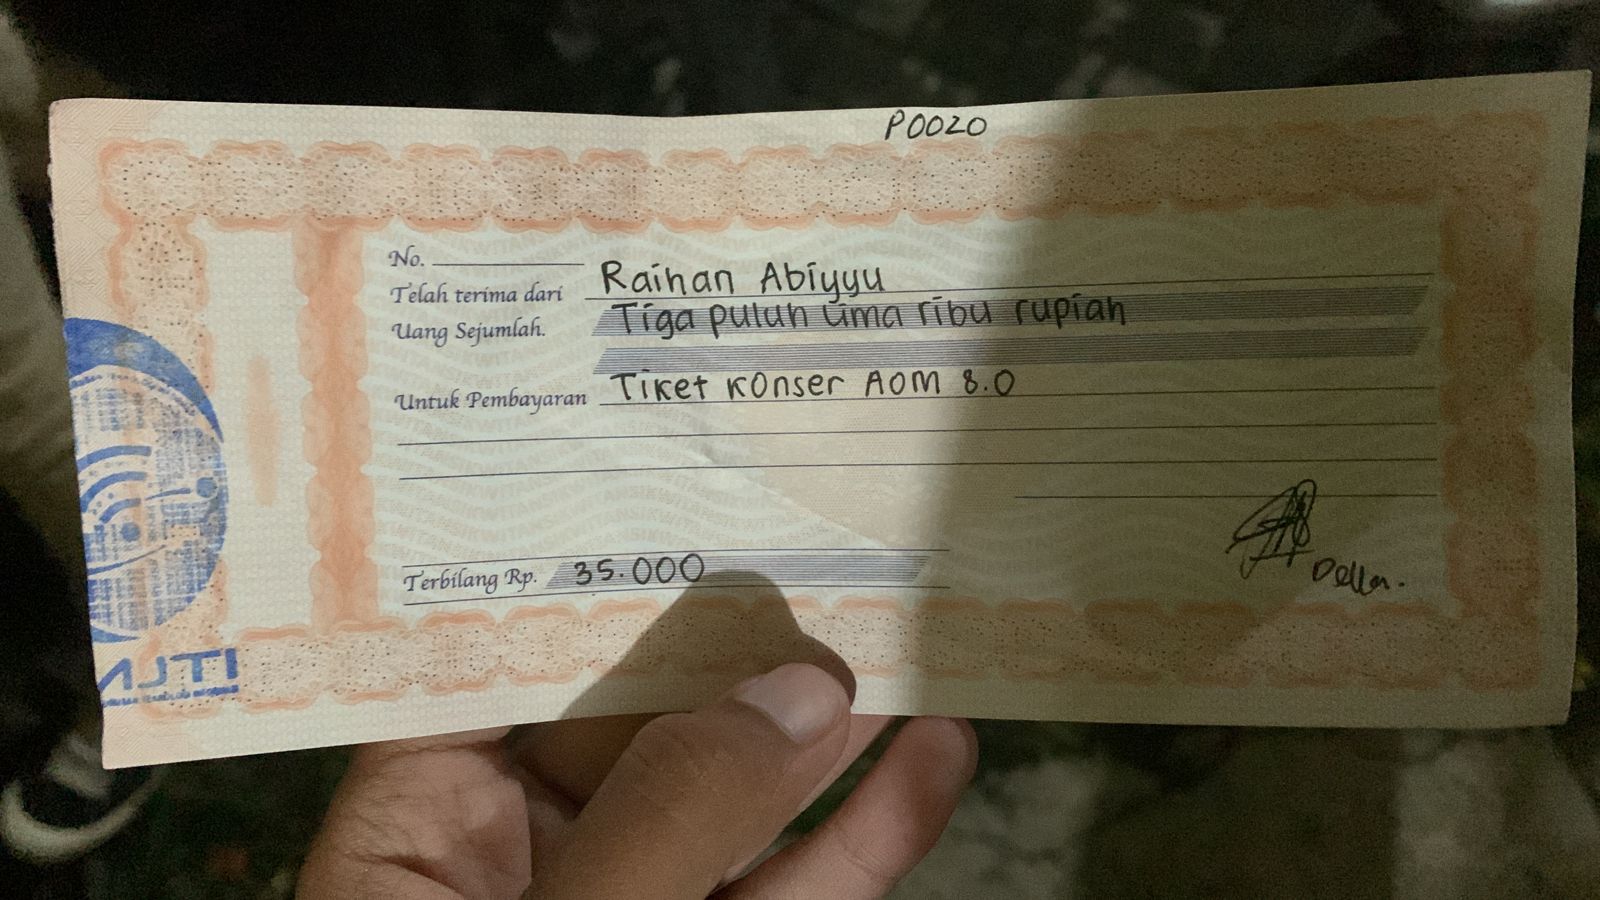 P0020
No.
Telah terima dari Raihan Abiyyu
Uang Sejumlah. Tiga puluh lima ribu rupiah
Untuk Pembayaran Tiket Konser AOM 8.0
Terbilang Rp. 35.000
Della.
ITLN